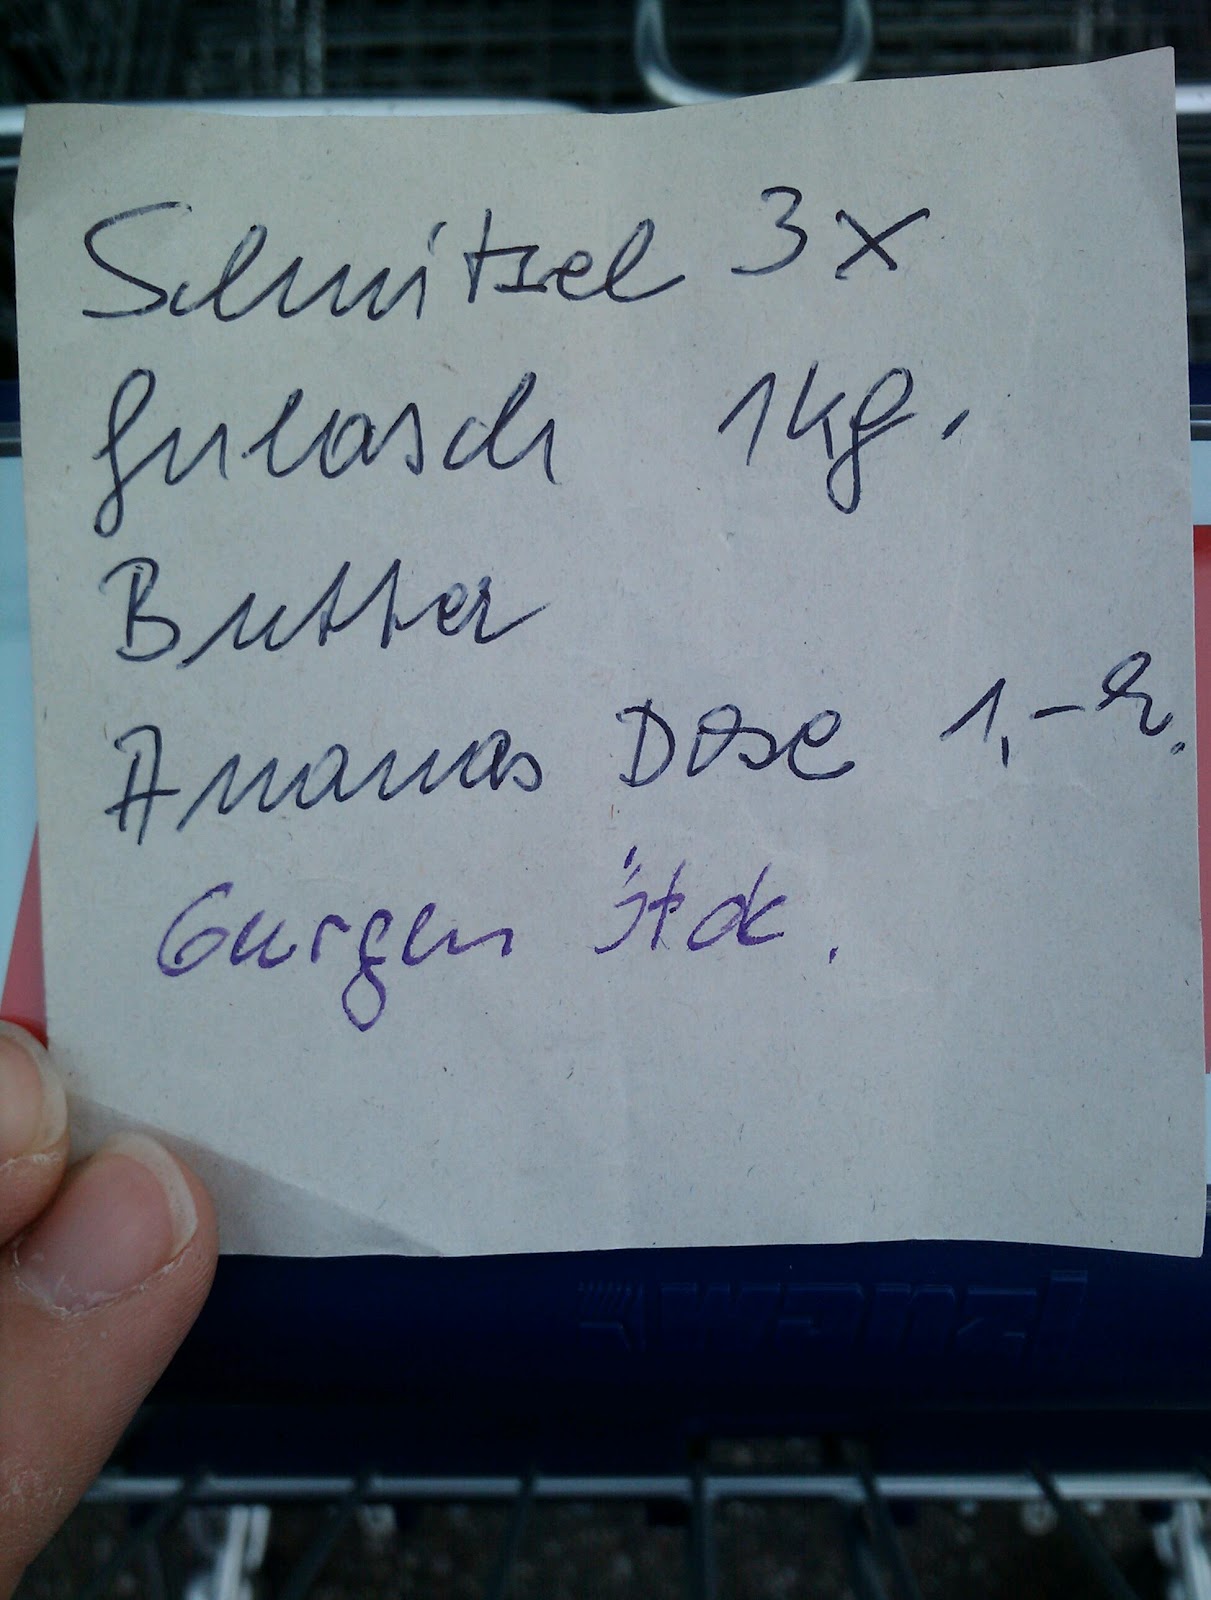 Schnitzel 3x
Gulasch 1kg.
Butter
Ananas Dose 1,-
Gurgen